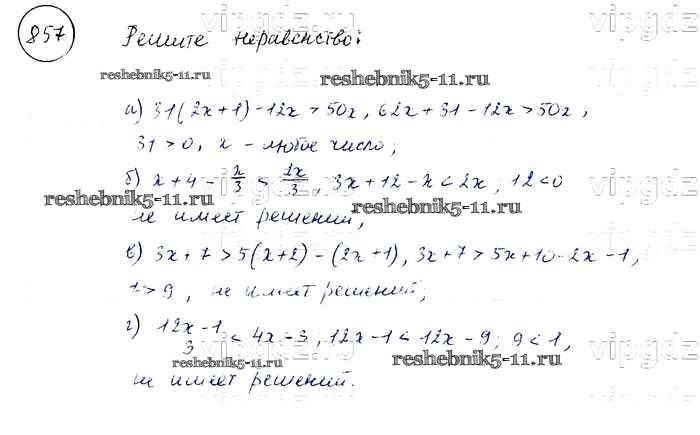 857 Решите неравенство:
reshebnik5-11.ru reshebnik5-11.ru
а) 31(2x+1)-12x>50x, 62x+31-12x>50x;
31>0, x - любое число;
б) x+4-x/3<2x/3, 3x+12-x<2x; 12<0
reshebnik5-11.ru reshebnik5-11.ru
не имеет решений;
в) 3x+7>5(x+2)-(2x+1), 3x+7>5x+10-2x-1,
7>9, не имеет решений;
г) 12x-1/3<4x-3, 12x-1<12x-9; 9<1,
reshebnik5-11.ru reshebnik5-11.ru
не имеет решений.
vipgdz
vipgdz
vipgdz
vipgdz
vipgdz